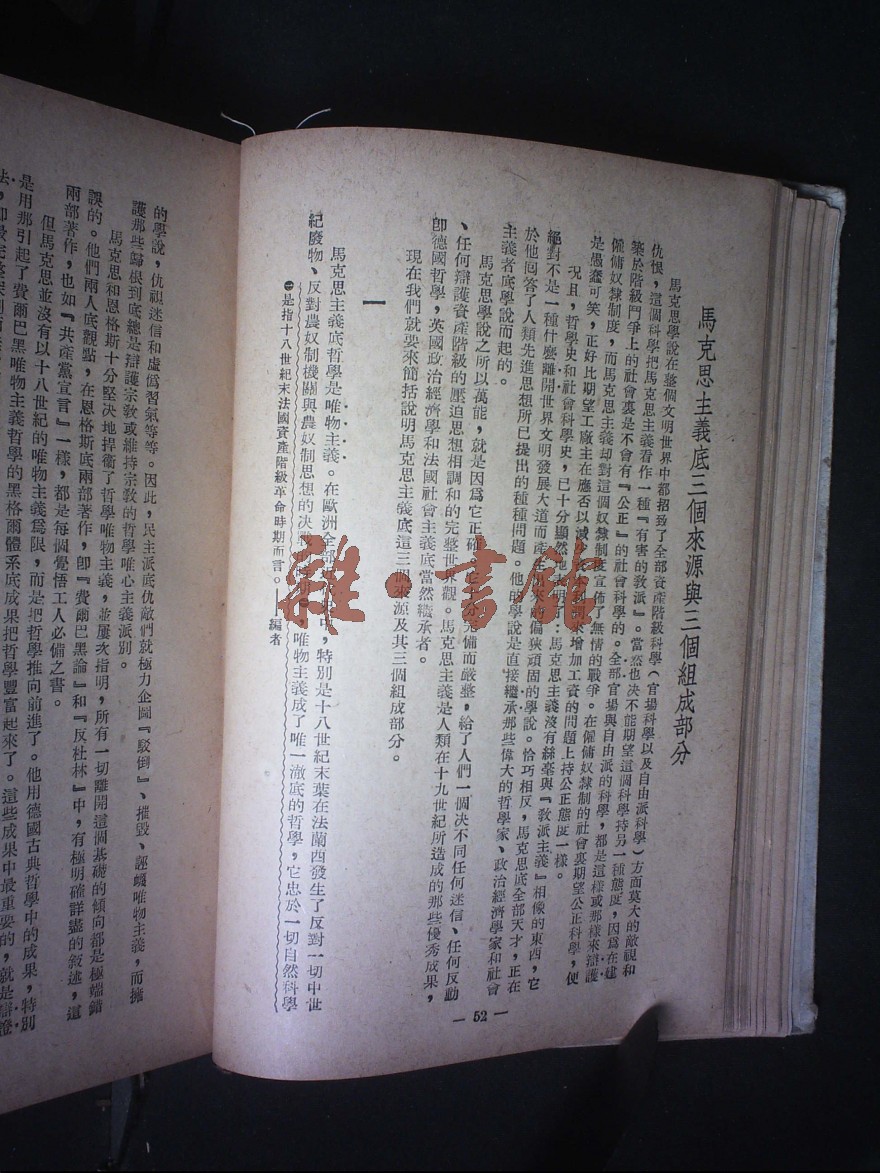 馬克思主義底三個來源與三個組成部分
馬克思學說在整個文明世界中都招致了全部資產階級科學(官場科學以及自由派科學)方面莫大的敵視和
仇恨,這個科學把馬克思主義看作一種『有害的敎派』。當然也决不能期望這個科學持另一種態度,因爲在建
築於階級鬥爭上的社會裏是不會有『公正』的社會科學的。全部官場與自由派的科學,都是這樣或那樣來辯護
僱傭奴隸制度,而馬克思主義却對這個奴隸制度宣佈了無情的戰爭。在僱傭奴隸制的社會裏期望公正科學,便
是愚蠢可笑,正好比期望工廠主在應否以減 資本利潤來增加工資的問題上持公正態度一樣。
况且,哲學史和社會科學史,已十分顯然地 明:馬克思主義沒有絲毫與『敎派主義』相像的東西,它
絕對不是一種什麼離開世界文明發展大道而產生 來的偏狹頑固的學說。恰巧相反,馬克思底全部天才,正在
於他回答了人類先進思想所已提出的種種問題。他的學說是直接繼承那些偉大的哲學家、政治經濟學家和社會
主義者底學說而起的。
馬克思學說之所以萬能,就是因爲它正確。它十分完備而嚴整,給了人們一個决不同任何迷信、任何反動
、任何辯護資產階級的壓迫思想相調和的完整世界觀。馬克思主義是人類在十九世紀所造成的那些優秀成果,
卽德國哲學,英國政治經濟學和法國社會主義底當然繼承者。
現在我們就要來簡括說明馬克思主義底這三個來源及其三個組成部分。
一
馬克思主義底哲學是唯物主義。在歐洲全部 中,特別是十八世紀末葉在法蘭西發生了反對一切中世
紀廢物、反對農奴制機關與農奴制思想的决戰 唯物主義成了唯一澈底的哲學,它忠於一切自然科學
㊀是指十八世紀末法國資產階級革命時期而言。——編者
— 52 —
的學說,仇視迷信和虛僞習氣等等。因此,民主派底仇敵們就極力企圖『駁倒』、摧毀、誣衊唯物主義,而擁
護那些歸根到底總是辯護宗敎或維持宗敎的哲學唯心主義派別。
馬克思和恩格斯十分堅决地捍衞了哲學唯物主義,並屢次指明,所有一切離開這個基礎的傾向都是極端錯
誤的。他們兩人底觀點,在恩格斯底兩部著作,卽『費爾巴黑論』和『反杜林』中,有極明確詳盡的敘述,這
兩部著作,也如『共產黨宣言』一樣,都是每個覺悟工人必備之書。
但馬克思並沒有以十八世紀的唯物主義爲限,而是把哲學推向前進了。他用德國古典哲學中的成果,特別
是用那引起了費爾巴黑唯物主義哲學的黑格爾體系底成果把哲學豐富起來了。這些成果中最重要的,就是辯證
法,卽最完
雜·書館